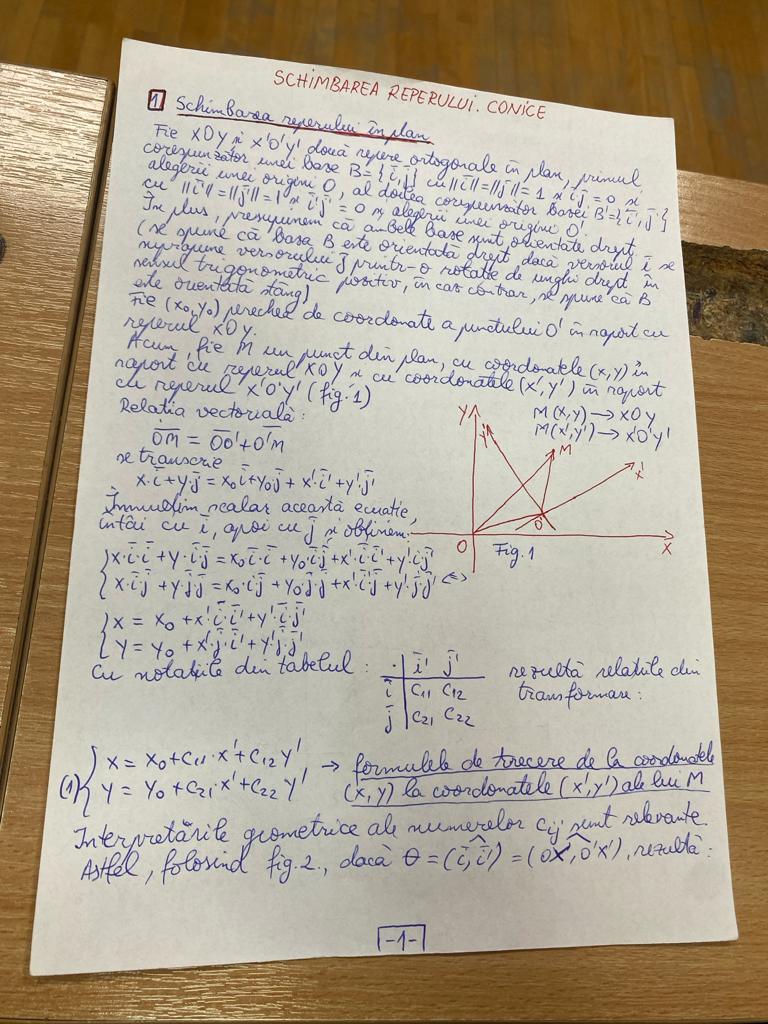 SCHIMBAREA REPERULUI. CONICE
1 Schimbarea reperului în plan
Fie xOy și x'O'y' două repere ortogonale în plan, primul
corespunzător unei baze B={ī,j̄} cu ||ī||=||j̄||=1 și ī·j̄=0 și
alegerii unei origini O, al doilea corespunzător bazei B'={ī',j̄'}
cu ||ī'||=||j̄'||=1 și ī'·j̄'=0 și alegerii unei origini O'.
În plus, presupunem că ambele baze sunt orientate drept
(se spune că baza B este orientată drept dacă versorul ī se
suprapune versorului j̄ printr-o rotație de unghi drept în
sensul trigonometric pozitiv, în caz contrar, se spune că B
este orientată stâng)
Fie (x₀,y₀) perechea de coordonate a punctului O' în raport cu
reperul xOy.
Acum, fie M un punct din plan, cu coordonatele (x,y) în
raport cu reperul xOy și cu coordonatele (x',y') în raport
cu reperul x'O'y' (fig. 1)
Relația vectorială:
O̅M̅ = O̅O̅'+O̅'M̅
se transcrie
x·ī+y·j̄ = x₀ī+y₀j̄ + x'·ī'+y'·j̄'
M(x,y) → xOy
M(x',y') → x'O'y'
Y
Y'
M
X'
O'
O
X
Fig. 1
Înmulțim scalar această ecuație,
întâi cu ī, apoi cu j̄ și obținem:
{x·ī·ī+y·ī·j̄ = x₀ī·ī+y₀ī·j̄+x'·ī·ī'+y'·ī·j̄'
{x·ī·j̄+y·j̄·j̄ = x₀·ī·j̄+y₀j̄·j̄+x'ī'·j̄+y'·j̄·j̄' <=>
{x = x₀+x'·ī·ī'+y'·ī·j̄'
{y = y₀+x'·j̄·ī'+y'·j̄·j̄'
Cu notațiile din tabelul :
· | ī' j̄'
ī | c₁₁ c₁₂
j̄ | c₂₁ c₂₂
rezultă relațiile din
transformare:
(1) {x = x₀+c₁₁·x'+c₁₂ y'
{y = y₀+c₂₁·x'+c₂₂ y'
→ formulele de trecere de la coordonatele
(x,y) la coordonatele (x',y') ale lui M
Interpretările geometrice ale numerelor cij sunt relevante.
Astfel, folosind fig. 2., dacă θ = (ī,ī') = (Ox,O'x'), rezultă:
-1-